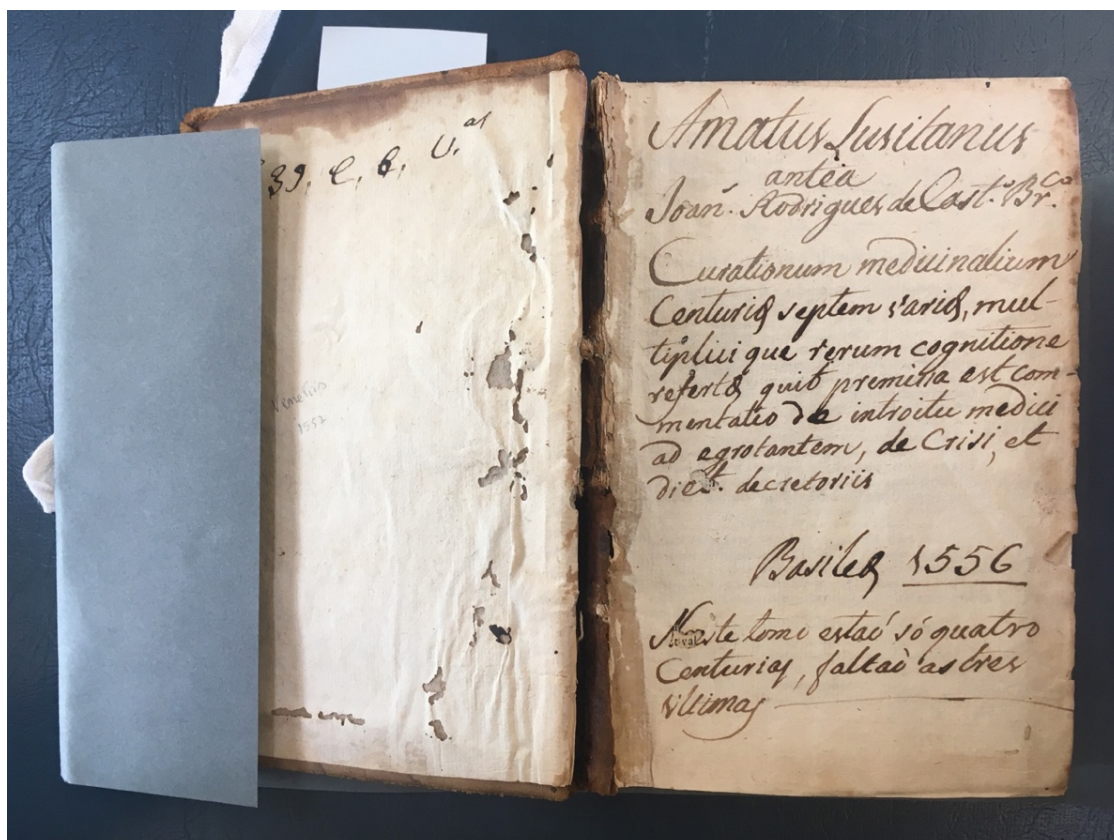 39, C, 6, U.as
1557
Amatus Lusitanus
antea
Joañ. Rodrigues de Cast.º Br.co
Curationum medicinalium
Centuriæ septem variæ, mul-
tiplicique rerum cognitione
refertæ quib premissa est com-
mentatio de introitu medici
ad egrotantem, de Crisi, et
dieb. decretoriis
Basileæ 1556
Neste tomo estaõ só quatro
Centurias, faltaõ as tres
ultimas